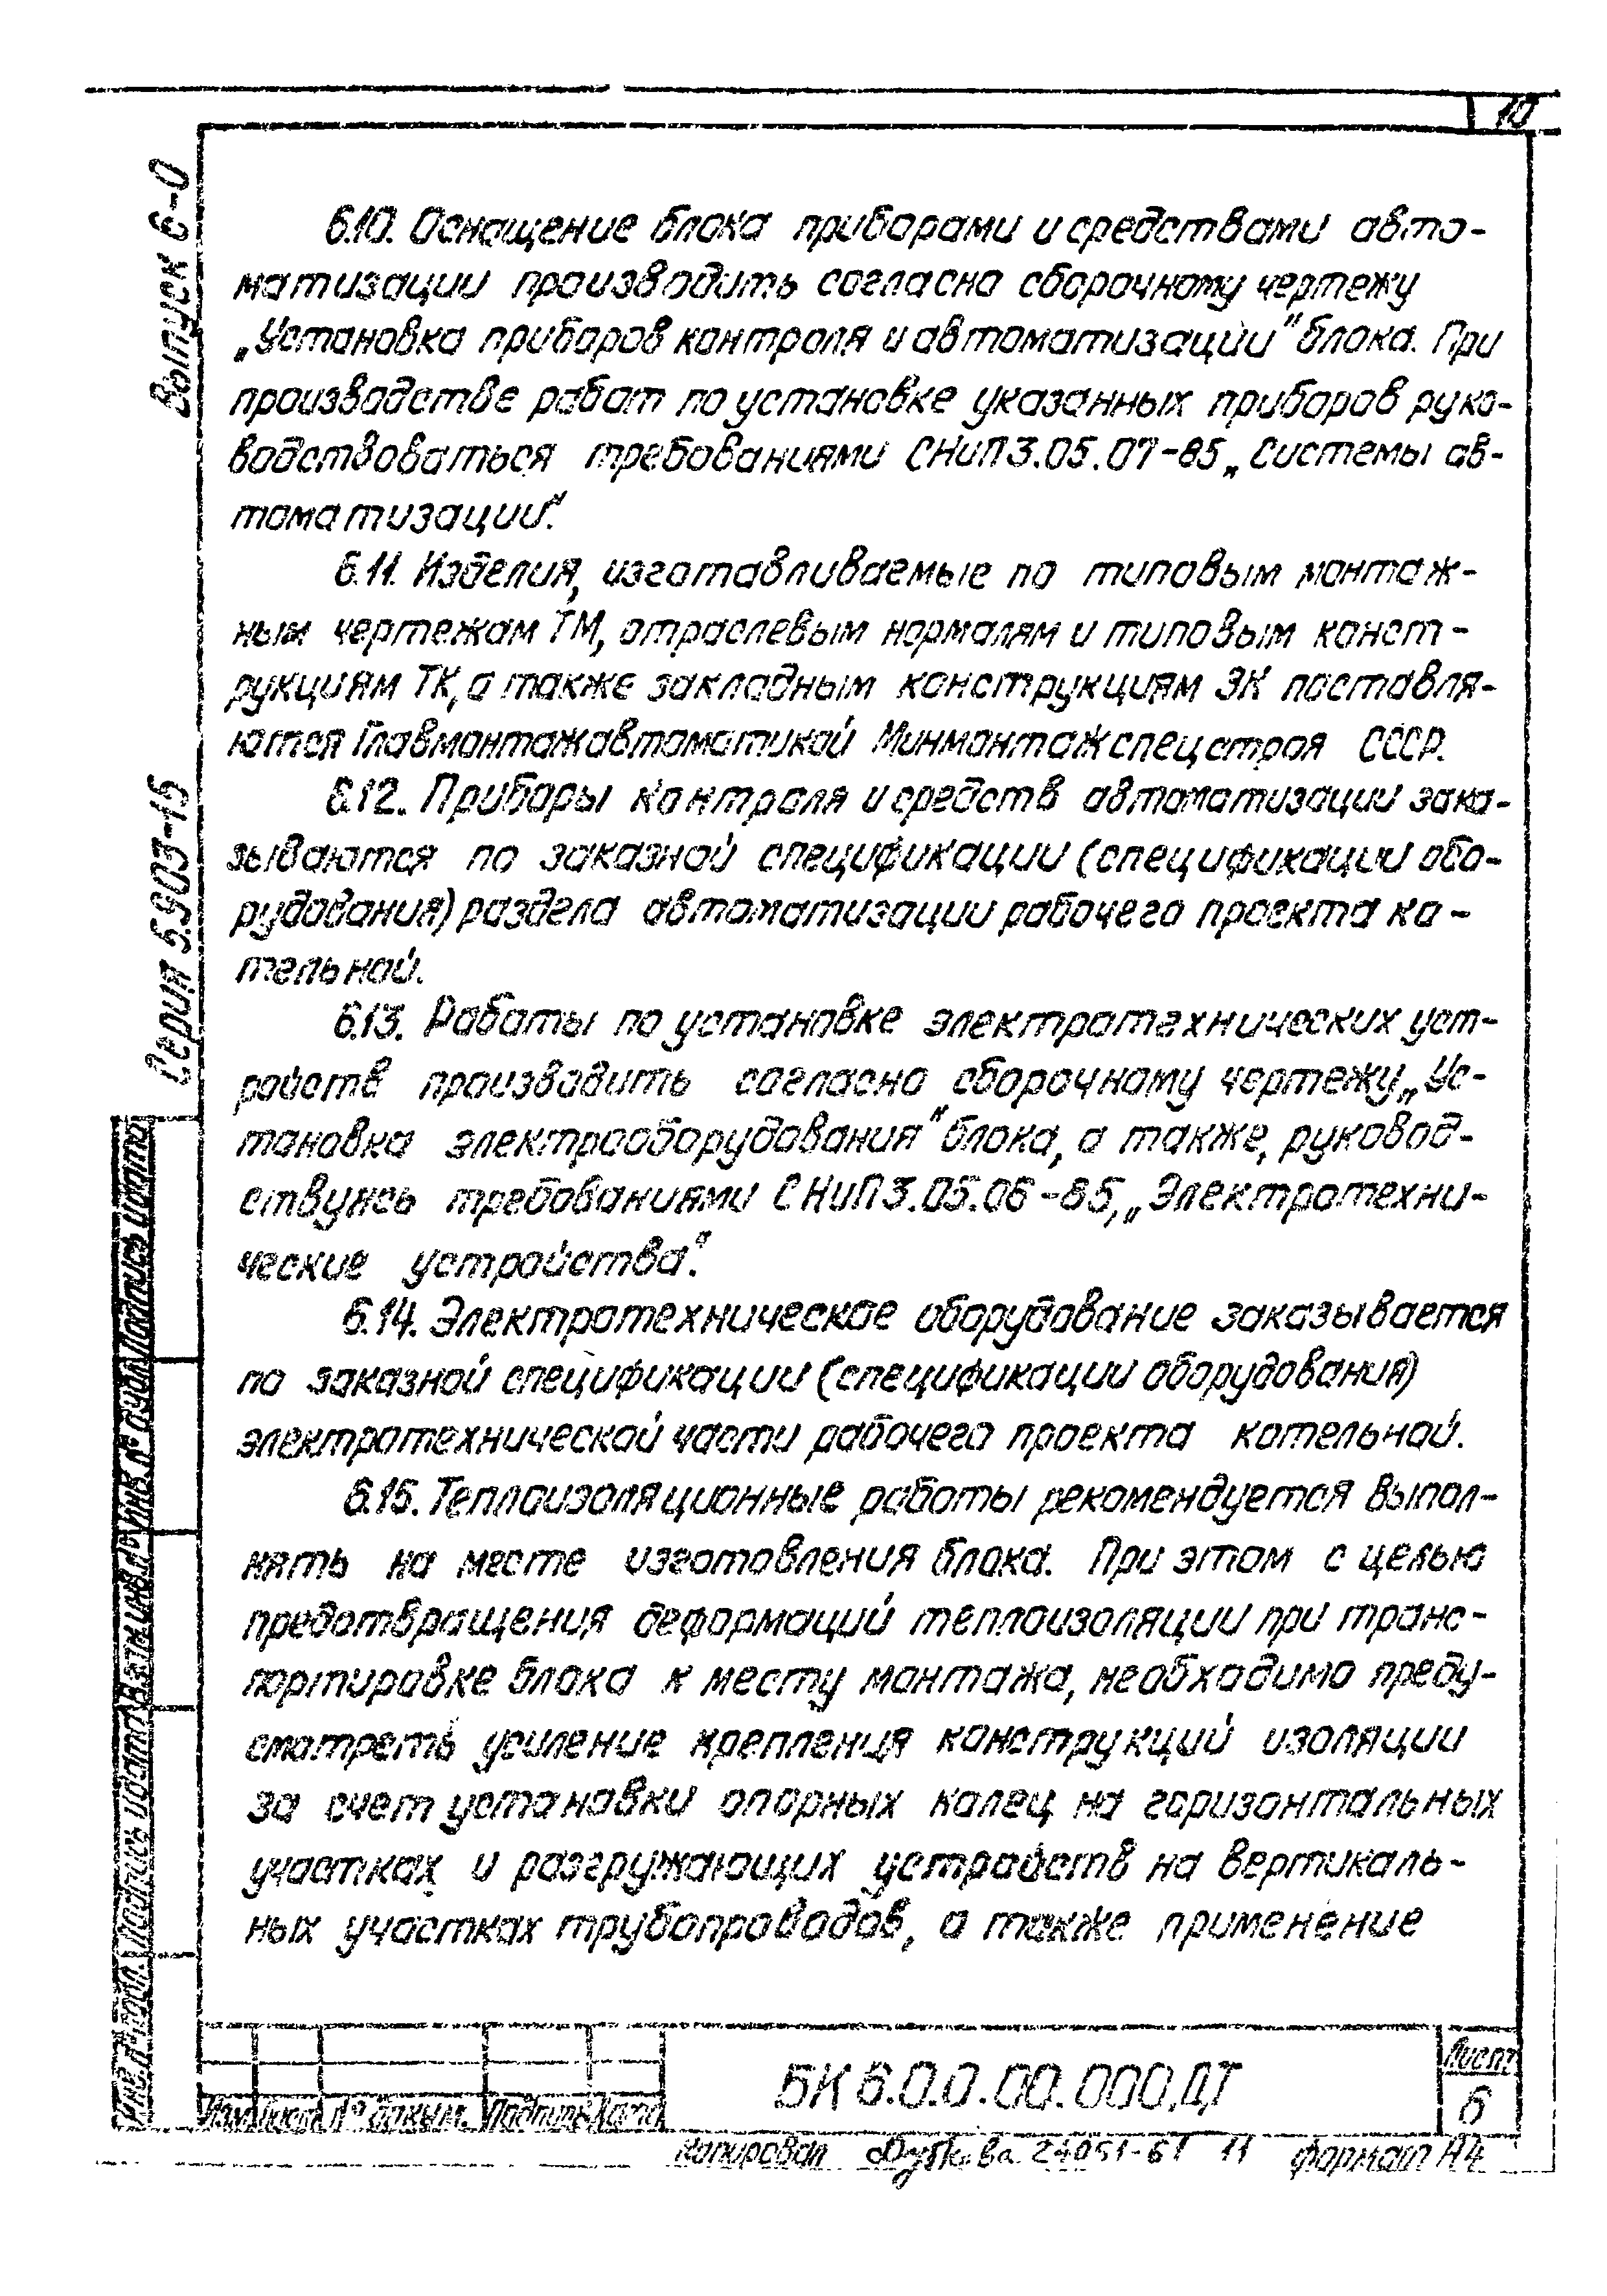 10
Выпуск 6-0
Серия 5.903-15
6.10. Оснащение блока приборами и средствами авто-
матизации производить согласно сборочному чертежу
„Установка приборов контроля и автоматизации“ блока. При
производстве работ по установке указанных приборов руко-
водствоваться требованиями СНиП 3.05.07-85 „Системы ав-
томатизации“.
6.11. Изделия, изготавливаемые по типовым монтаж-
ным чертежам ТМ, отраслевым нормалям и типовым конст-
рукциям ТК, а также закладным конструкциям ЗК поставля-
ются Главмонтажавтоматикой Минмонтажспецстроя СССР.
6.12. Приборы контроля и средств автоматизации зака-
зываются по заказной спецификации (спецификации обо-
рудования) раздела автоматизации рабочего проекта ко-
тельной.
6.13. Работы по установке электротехнических уст-
ройств производить согласно сборочному чертежу „Ус-
тановка электрооборудования“ блока, а также, руковод-
ствуясь требованиями СНиП 3.05.06-85, „Электротехни-
ческие устройства“.
6.14. Электротехническое оборудование заказывается
по заказной спецификации (спецификации оборудования)
электротехнической части рабочего проекта котельной.
6.15. Теплоизоляционные работы рекомендуется выпол-
нять на месте изготовления блока. При этом с целью
предотвращения деформаций теплоизоляции при транс-
портировке блока к месту монтажа, необходимо преду-
смотреть усиление крепления конструкций изоляции
за счет установки опорных колец на горизонтальных
участках и разгружающих устройств на вертикаль-
ных участках трубопроводов, а также применение
Инв. № подл. Подпись и дата Взам. инв. № Инв. № дубл. Подпись и дата
Изм. Лист № докум. Подпись Дата
БК 6.0.0.00.000.ДТ
Лист
6
Копировал 24051-61 11 формат А4